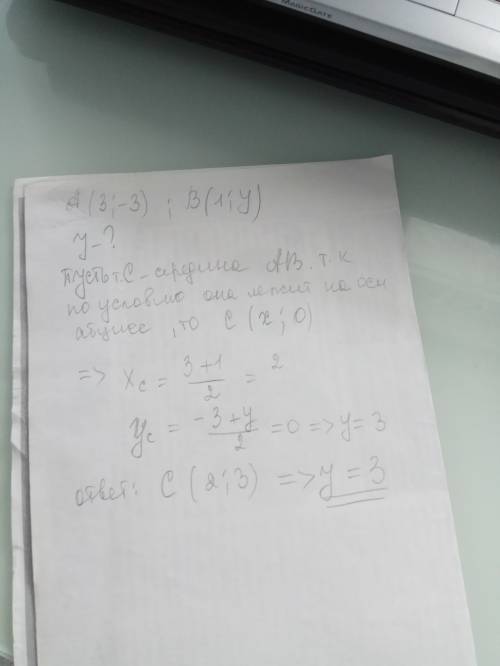 MagicGate
A (3; -3) ; B (1; y)
y - ?
Пусть т. C - середина AB. т. к
по условию она лежит на оси
абцисс, то C (x; 0)
=> x_c = (3+1)/2 = 2
y_c = (-3+y)/2 = 0 => y = 3
ответ: C (2; 3) => y = 3